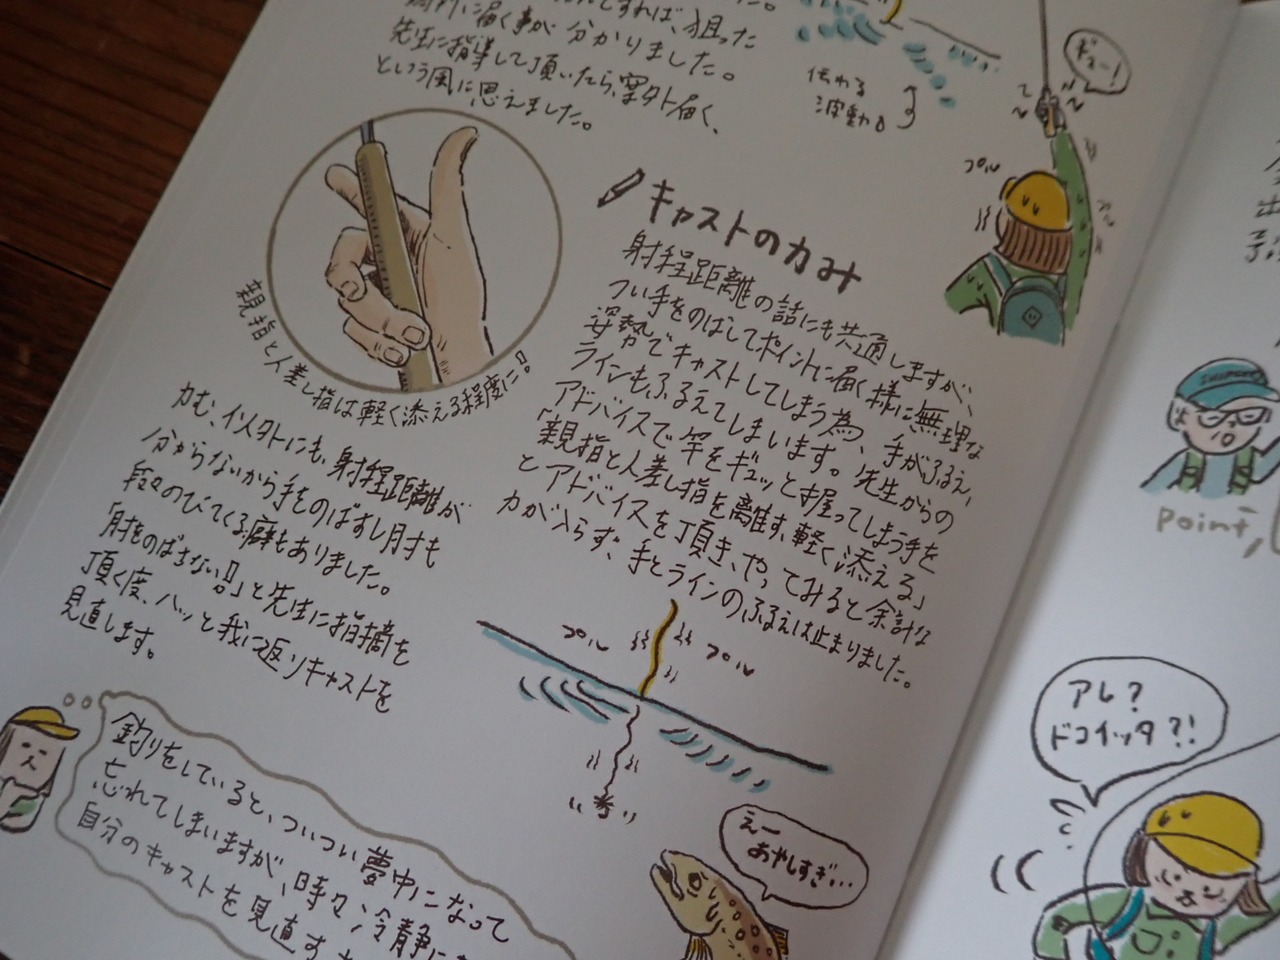 届く事が分かりました。
先生に指導して頂いたら、案外届く、
という風に思えました。
伝わる
波動。
ギュー!
プル
親指と人差し指は軽く添える程度に!!
キャストの力み
射程距離の話にも共通しますが、
つい手をのばしてポイントに届く様に無理な
姿勢でキャストしてしまう為、手がふるえ、
ラインもふるえてしまいます。先生からの
アドバイスで竿をギュッと握ってしまう手を
「親指と人差し指を離す、軽く添える」
とアドバイスを頂き、やってみると余計な
力が入らず、手とラインのふるえは止まりました。
力む、以外にも、射程距離が
分からないから手をのばすし肘も
段々のびてくる癖もありました。
「肘をのばさない!!」と先生に指摘を
頂く度、ハッと我に返りキャストを
見直します。
プル
プル
釣りをしていると、ついつい夢中になって
忘れてしまいますが、時々冷静に
自分のキャストを見直す
えー
あやしすぎ…
Point,
アレ?
ドコイッタ?!